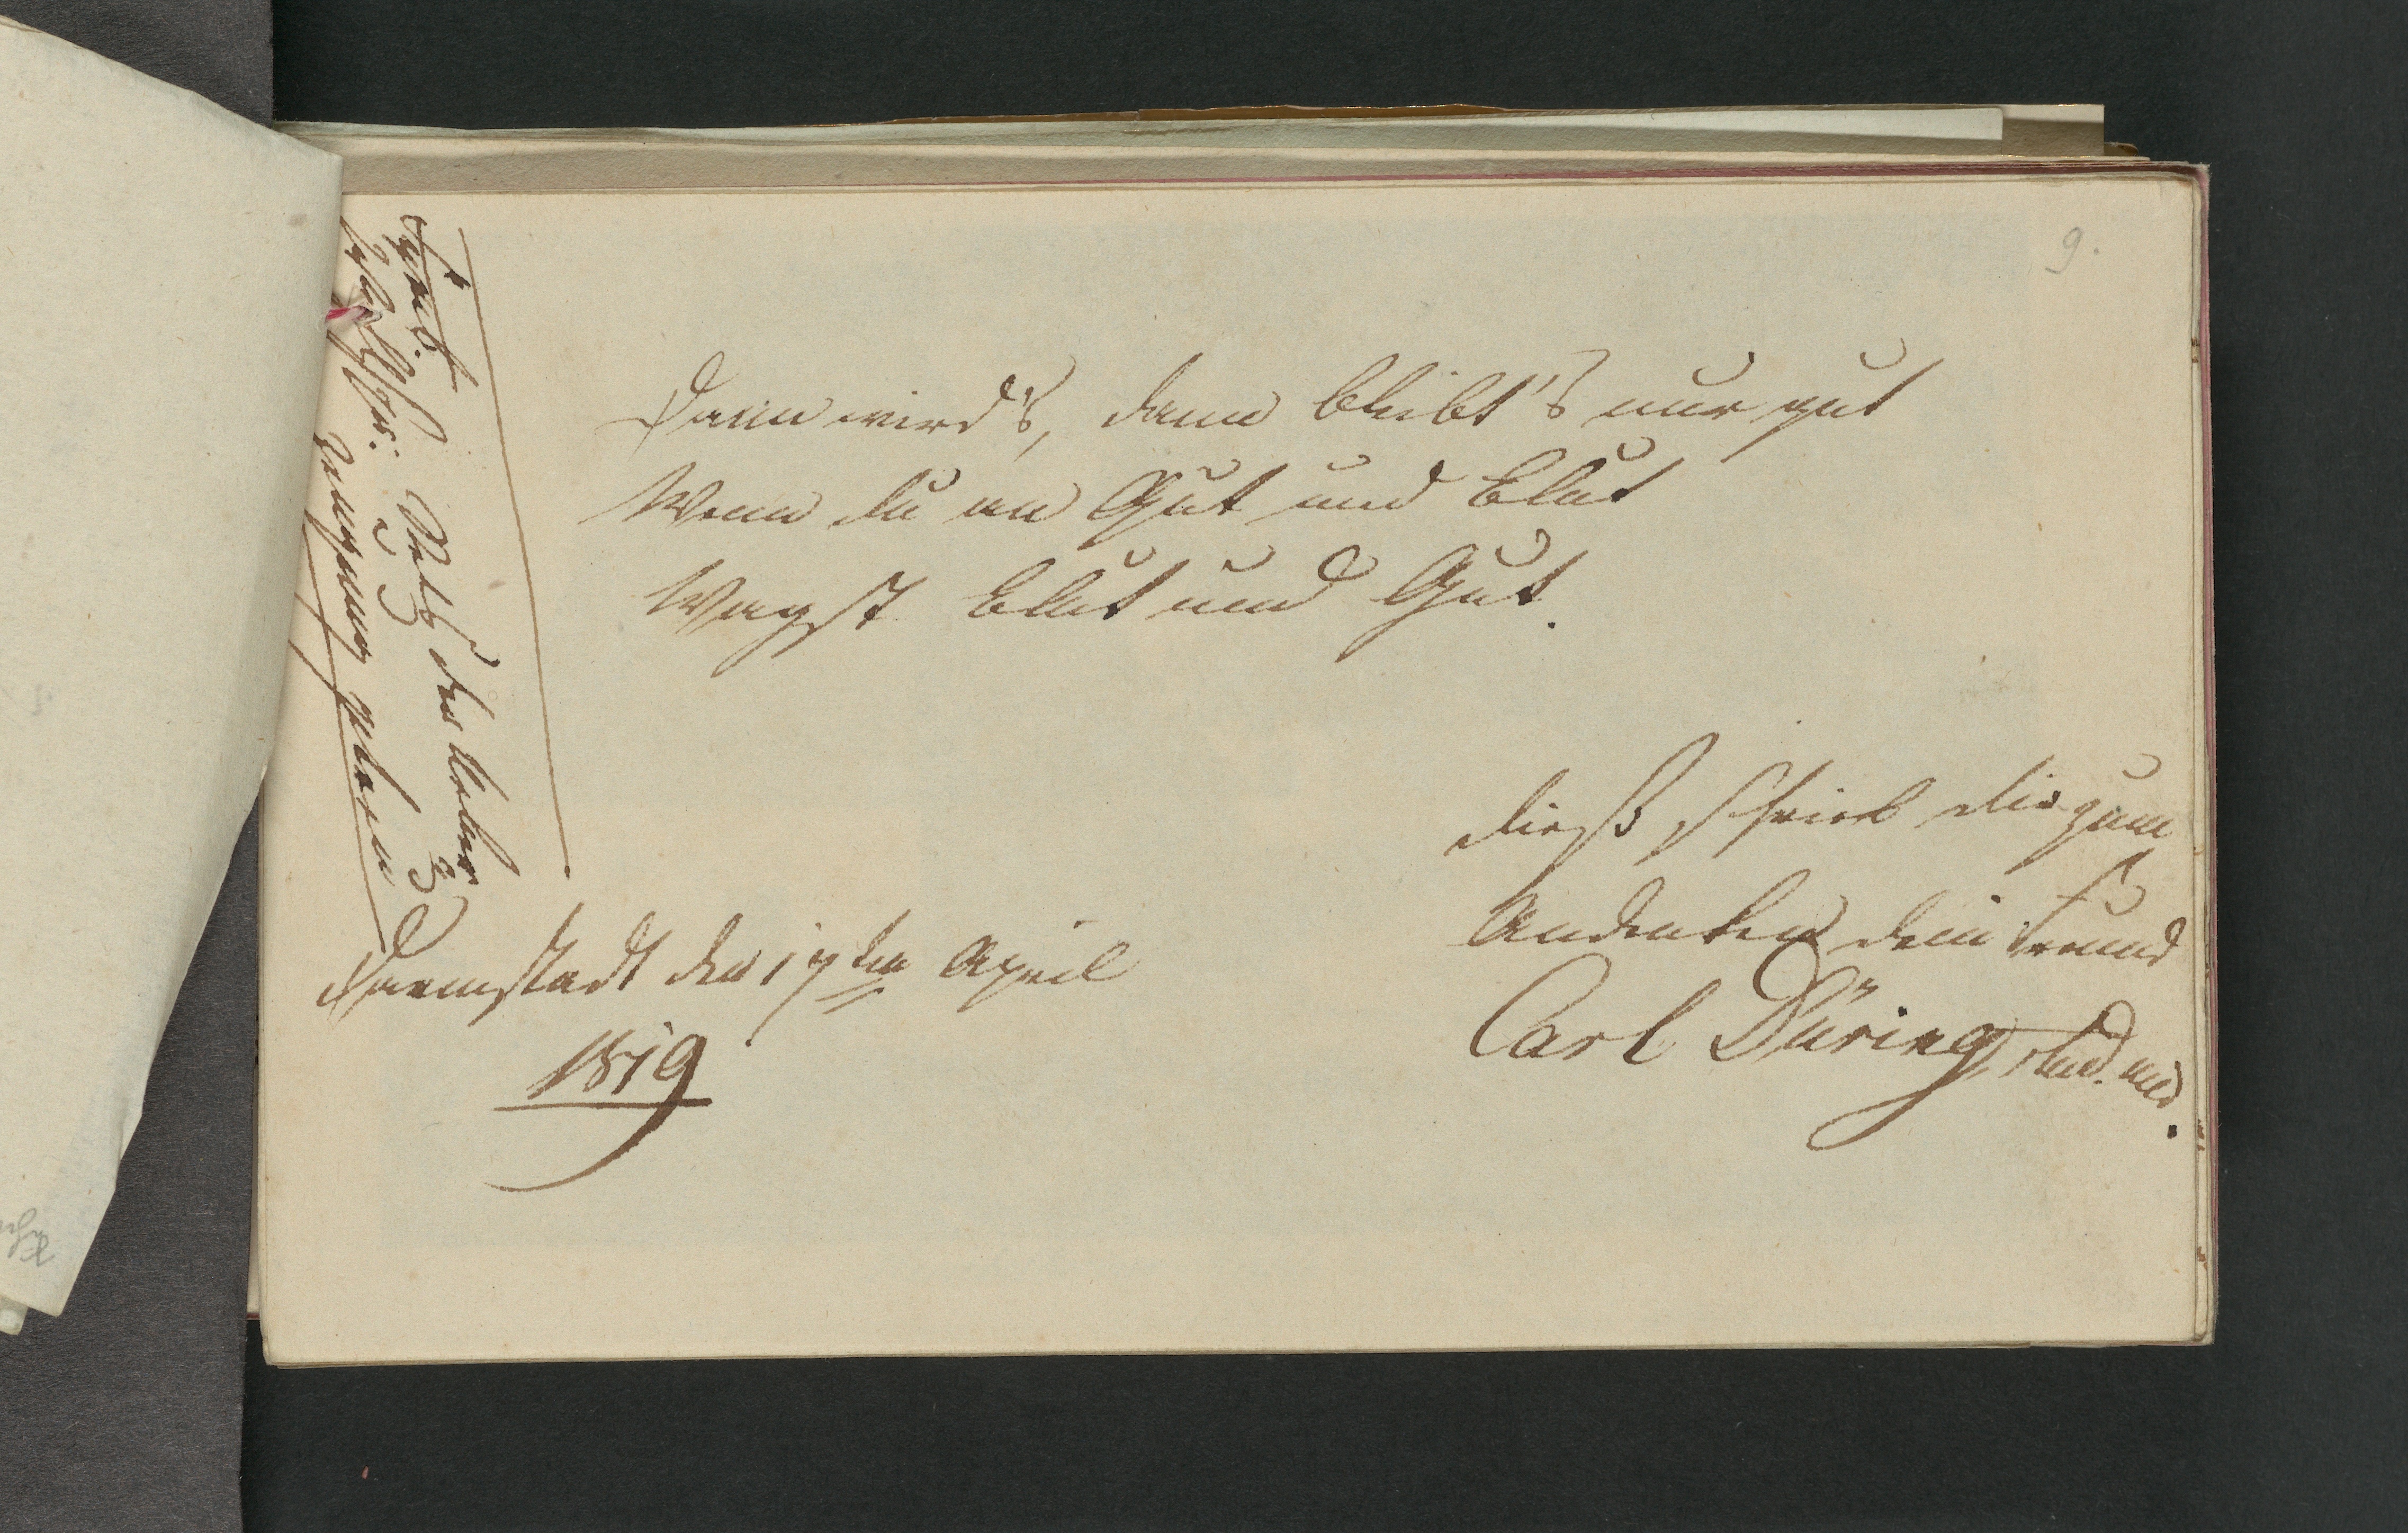 9.
Dann wird's, dann bleibt's nur gut
Wenn du an Gut und Blut
Wagst Blut und Gut.
Dieß schrieb dir zum
Andenken dein Freund
Carl Düring, stud. med.
Darmstadt den 17ten April
1819
Symb.